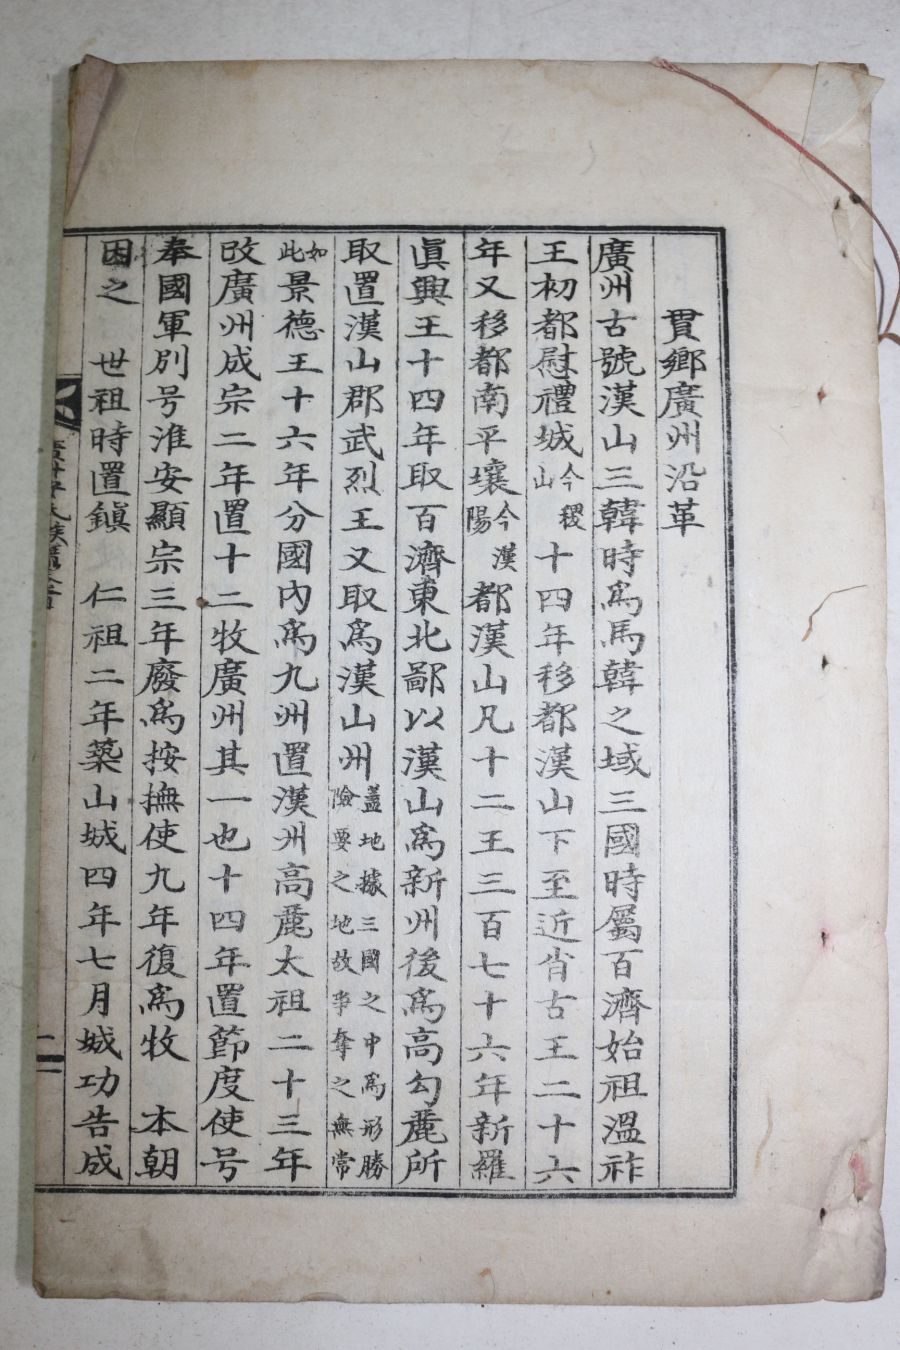 貫鄉廣州沿革
廣州古號漢山三韓時爲馬韓之域三國時屬百濟始祖溫祚
王初都慰禮城今稷山十四年移都漢山下至近肖古王二十六
年又移都南平壤今漢陽都漢山凡十二王三百七十六年新羅
眞興王十四年取百濟東北鄙以漢山爲新州後爲高勾麗所
取置漢山郡武烈王又取爲漢山州蓋地據三國之中爲形勝險要之地故爭奪之無常
如此景德王十六年分國內爲九州置漢州高麗太祖二十三年
改廣州成宗二年置十二牧廣州其一也十四年置節度使号
奉國軍別号淮安顯宗三年廢爲按撫使九年復爲牧 本朝
因之 世祖時置鎭 仁祖二年築山城四年七月城功告成